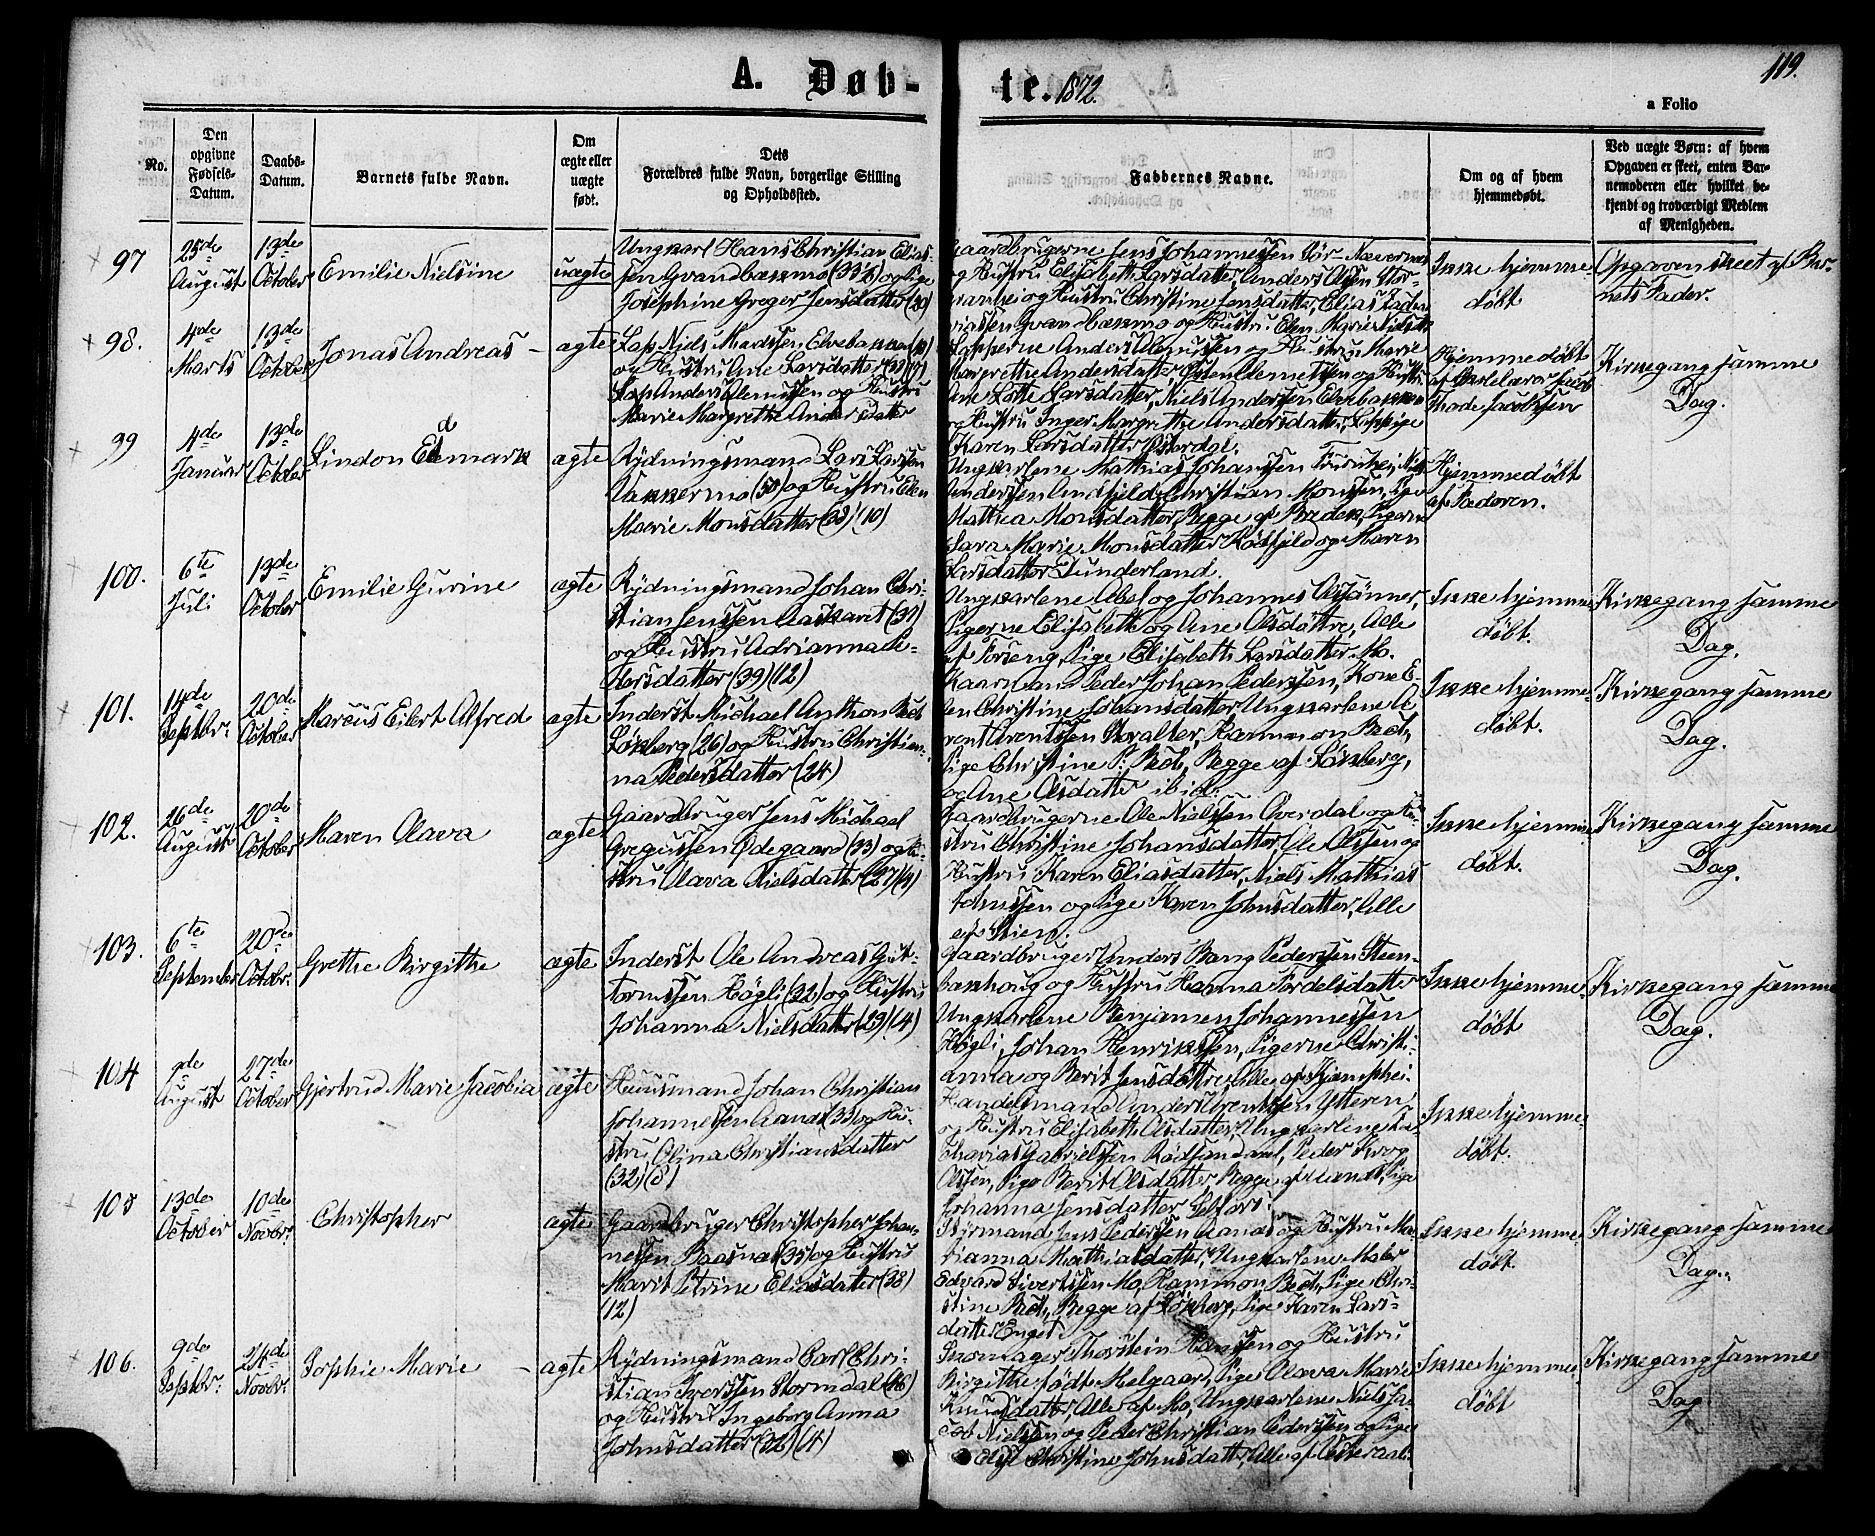 A. Døb-te. 1872. 119.
a Folio
No.
Den opgivne Fødsels-Datum.
Daabs-Datum.
Barnets fulde Navn.
Om ægte eller uægte født.
Dets Forældres fulde Navn, borgerlige Stilling og Opholdssted.
Faddernes Navne.
Om og af hvem hjemmedøbt.
Ved uægte Børn: af hvem Opgaven er skeet, enten Barnemoderen eller hvilket bekjendt og troværdigt Medlem af Menigheden.
97 25de August 13de October Emilie Nielsine uægte
Ungkarl Hans Christian Elias-
sen Gvandbækmo (33½) og Pige
Josephine Greger Jensdatter (30)
Gaardbrugerne Jens Johannessen
og Hustru Elisabeth Larsdatter, Anders Olsen Stor-
og Hustru Christine Jonsdatter, Elias
Gvandbækmo og Hustru Elen Marie
Ikke hjemme-
døbt
Opgaven skeet af Bar-
nets Fader.
98. 4de Marts 13de October Jonas Andreas ægte
Lap Niels Madssen Elvebakken
og Hustru Ane Larsdatter (33)
Lap Anders Clemetssen og Hustru
Marie Margrethe Andersdatter
Lapperne Anders Clemetssen og Hustru Marie
Margrethe Andersdatter, Clemetssen og Hustru
Ane Lotte Larsdatter, Niels Anderssen Elvebakken
og Hustru Inger Margrethe Andersdatter, Lappige
Karen Larsdatter Stordal.
Hjemmedøbt
af Skolelærer Jacob
Thode Jacobssen
Kirkegang samme
Dag.
99 4de Januar 13de October Lindon Edemark ægte
Rydningsmand Lars Larssen
Vakkermo (38) og Hustru Elen
Marie Monsdatter (38) (10)
Ungkarlene Mathias Johanssen Furuhei, Niels
Anderssen Andfjeld, Christian Monssen, Pige
Mathea Monsdatter, Begge af Bredek, Pigerne
Sara Marie Monsdatter Rødfjeld og Maren
Larsdatter Dunderland.
Hjemmedøbt
af Faderen.
100. 6te Juli 13de October Emilie Gurine ægte
Rydningsmand Johan Chri-
stian Jenssen Aaskaret (37)
og Hustru Adrianna Pe-
dersdatter (39) (12)
Ungkarlene Abel og Johannes Olssønner,
Pigerne Elisabeth og Ane Olsdøttre, Alle
af Forseng, Pige Elisabeth Larsdatter Mo.
Ikke hjemme
døbt.
Kirkegang samme
Dag.
101. 14de Septbr. 20de October Marcus Eilert Alfred ægte
Inderst Michael Anthon Bech
Langberg (26) og Hustru Christian-
na Pedersdatter (24)
Kaarmand Peder Johan Pederssen, Kone E-
len Christine Johansdatter, Ungkarlene A-
rent Arentssen Storalter, Hammon Bech,
Pige Christine P. Bech, Begge af Langberg,
og Ane Olsdatter ibid.
Ikke hjemme-
døbt.
Kirkegang samme
Dag.
102. 26de August 20de October Maren Olava ægte
Gaardbruger Jens Michael
Gregussen Ødegaard (33) og Hu-
stru Olava Nielsdatter (27) (4)
Gaardbrugerne Ole Nielssen Overdal og Hu-
stru Christine Johansdatter, Ole Olssen og
Hustru Karen Eliasdatter, Niels Mathias
Johnssen og Pige Karen Johnsdatter, Alle
af Stien.
Ikke hjemme
døbt.
Kirkegang samme
Dag.
103. 6te September 20de Octobr. Grethe Birgithe ægte
Inderst Ole Andreas Gut-
tormssen Høgli (32) og Hustru
Johanna Nielsdatter (29) (4)
Gaardbruger Anders Bang Pederssen Steen-
bakhoug og Hustru Hanna Fordelsdatter
Ungkarlene Benjamen Johannessen
Høgli, Johan Henrikssen, Pigerne Christi-
anna og Berit Jensdøttre, Alle af Kjemphei.
Ikke hjemme-
døbt
Kirkegang samme
Dag.
104 August 27de October Gjertrud Marie Jacobia ægte
Huusmand Johan Christian
Johannessen Aanæs (33) og Hu-
stru Olina Christiansdatter
(32)
Handelsmand Anders Arentssen Ytteren
og Hustru Elisabeth Olsdatter, Ungkarlene
Gabrielssen Rødsandmel, Peder Krog
Olssen, Pige Berit Olsdatter, Begge af, Pige
Johanna Jensdatter Selfors.
Ikke hjemme-
døbt.
105 13de October 10de Novbr. Christopher ægte
Gaardbruger Christopher Johan-
nessen Baasnæs (35) og Hustru
Marit Petrine Eliasdatter (38)
(12)
Styrmand Jens Pederssen Aanæs og Hustru Ma-
rianna Mathiasdatter, Ungkarlene Maler
Edvard Sivertssen Mo, Hammon Bech, Pige Chri-
stine Bech, Begge af Langberg, Pige Karen Lars-
datter Enget.
Ikke hjemme-
døbt.
Kirkegang samme
Dag.
106. 9de Septbr. 24de Novbr. Sophie Marie ægte
Rydningsmand Carl Chri-
stian Iverssen Stormdal (26)
og Hustru Ingeborg Anna
Johnsdatter (22) (4)
Skomager Thorstein Hanssen og Hustru
Birgithe født Melgaard, Pige Olava Marie
Knudsdatter, Alle af Mo, Ungkarlene Niels Ja-
cob Nielssen og Peder Christian Pederssen og Pige
Christine Johnsdatter, Alle af
Ikke hjemme-
døbt
Kirkegang samme
Dag.